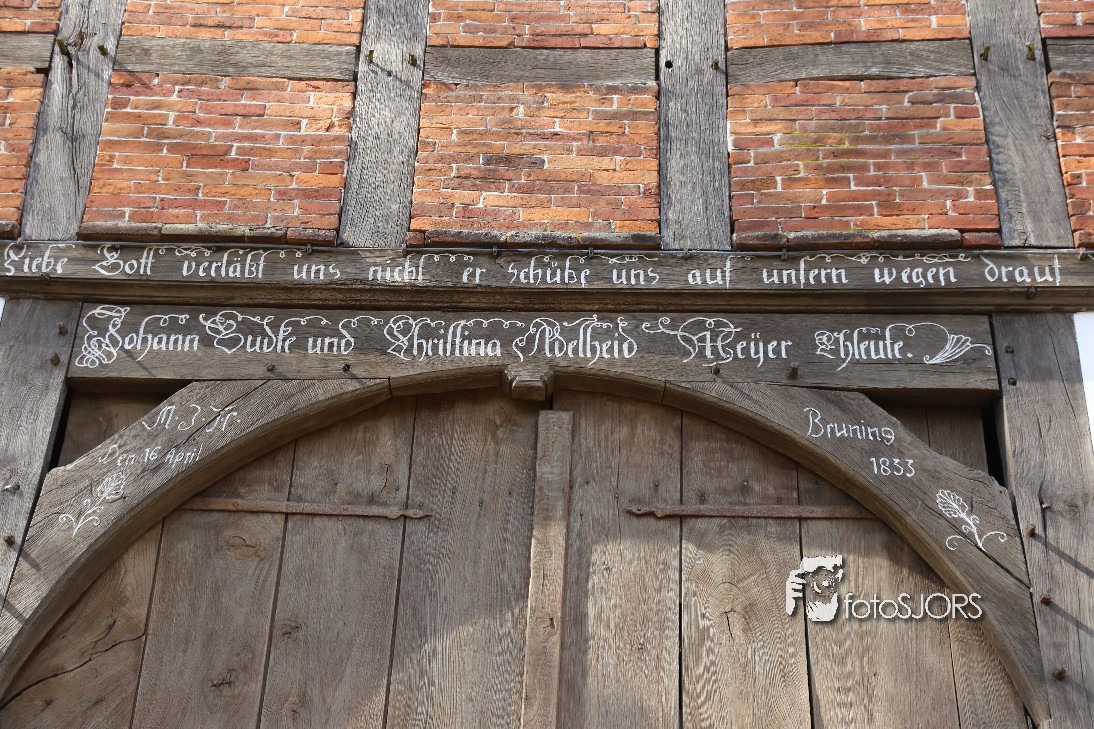 Liebe Gott verläßt uns nicht er schüße uns auf unsern wegen drauf
Johann Gudke und Christina Adelheid Meÿer Ehleute.
M. J. Fr. Bruning
Den 16 April 1833
fotoSJORS